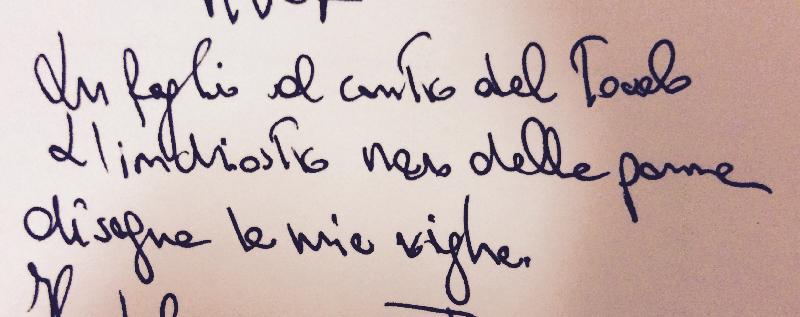 Un foglio al centro del Tavolo
L'inchiostro nero delle penne
disegna le mie righe.